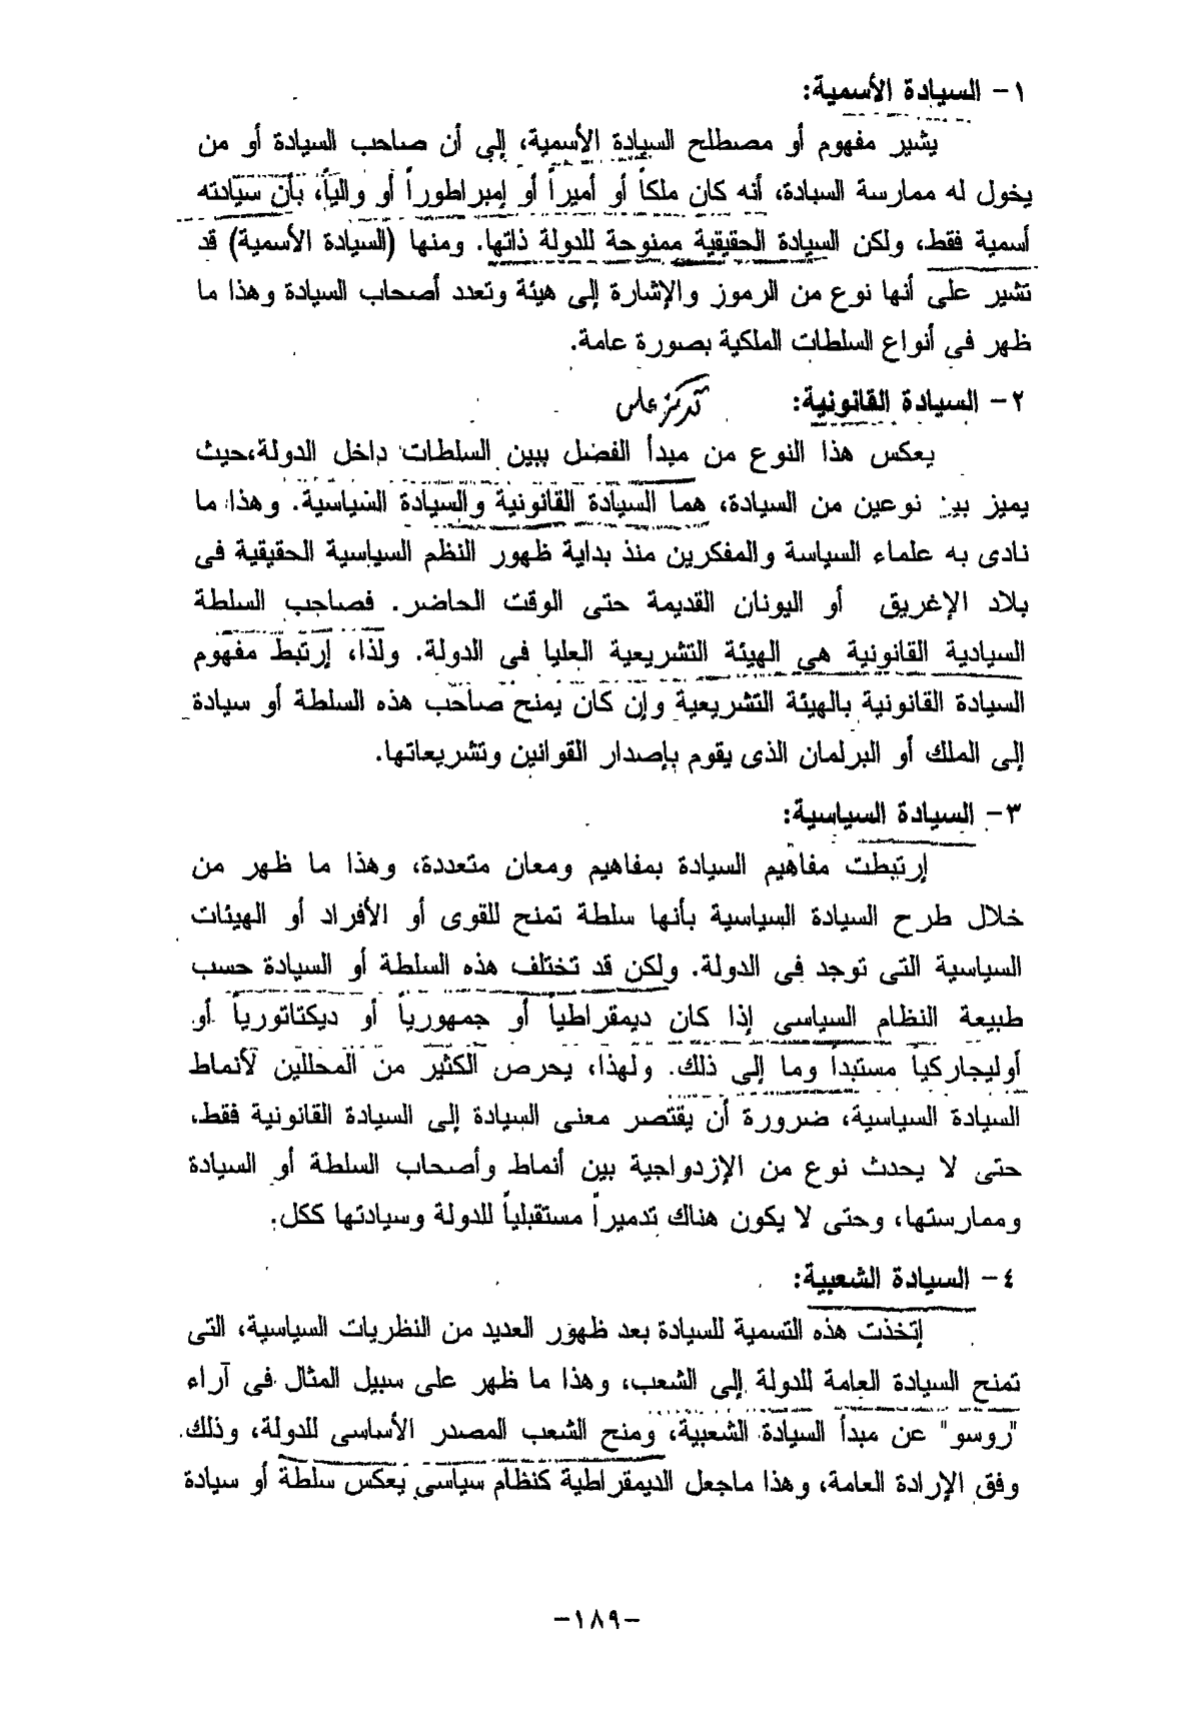 ١- السيادة الأسمية:
يشير مفهوم أو مصطلح السيادة الأسمية، إلى أن صاحب السيادة أو من
يخول له ممارسة السيادة، أنه كان ملكاً أو أميراً أو إمبراطوراً أو والياً، بأن سيادته
أسمية فقط، ولكن السيادة الحقيقية ممنوحة للدولة ذاتها. ومنها (السيادة الأسمية) قد
تشير على أنها نوع من الرموز والإشارة إلى هيئة وتعدد أصحاب السيادة وهذا ما
ظهر فى أنواع السلطات الملكية بصورة عامة.
٢- السيادة القانونية: تركز على
يعكس هذا النوع من مبدأ الفضل ببين السلطات داخل الدولة،حيث
يميز بين نوعين من السيادة، هما السيادة القانونية والسيادة السياسية. وهذا ما
نادى به علماء السياسة والمفكرين منذ بداية ظهور النظم السياسية الحقيقية فى
بلاد الإغريق أو اليونان القديمة حتى الوقت الحاضر. فصاحب السلطة
السيادية القانونية هى الهيئة التشريعية العليا فى الدولة. ولذا، إرتبط مفهوم
السيادة القانونية بالهيئة التشريعية وإن كان يمنح صاحب هذه السلطة أو سيادة
إلى الملك أو البرلمان الذى يقوم بإصدار القوانين وتشريعاتها.
٣- السيادة السياسية:
إرتبطت مفاهيم السيادة بمفاهيم ومعان متعددة، وهذا ما ظهر من
خلال طرح السيادة السياسية بأنها سلطة تمنح للقوى أو الأفراد أو الهيئات
السياسية التى توجد فى الدولة. ولكن قد تختلف هذه السلطة أو السيادة حسب
طبيعة النظام السياسى إذا كان ديمقراطياً أو جمهورياً أو ديكتاتورياً أو
أوليجاركيا مستبداً وما إلى ذلك. ولهذا، يحرص الكثير من المحللين لأنماط
السيادة السياسية، ضرورة أن يقتصر معنى السيادة إلى السيادة القانونية فقط،
حتى لا يحدث نوع من الإزدواجية بين أنماط وأصحاب السلطة أو السيادة
وممارستها، وحتى لا يكون هناك تدميراً مستقبلياً للدولة وسيادتها ككل.
٤- السيادة الشعبية:
إتخذت هذه التسمية للسيادة بعد ظهور العديد من النظريات السياسية، التى
تمنح السيادة العامة للدولة إلى الشعب، وهذا ما ظهر على سبيل المثال فى آراء
"روسو" عن مبدأ السيادة الشعبية، ومنح الشعب المصدر الأساسى للدولة، وذلك
وفق الإرادة العامة، وهذا ماجعل الديمقراطية كنظام سياسى يعكس سلطة أو سيادة
-١٨٩-